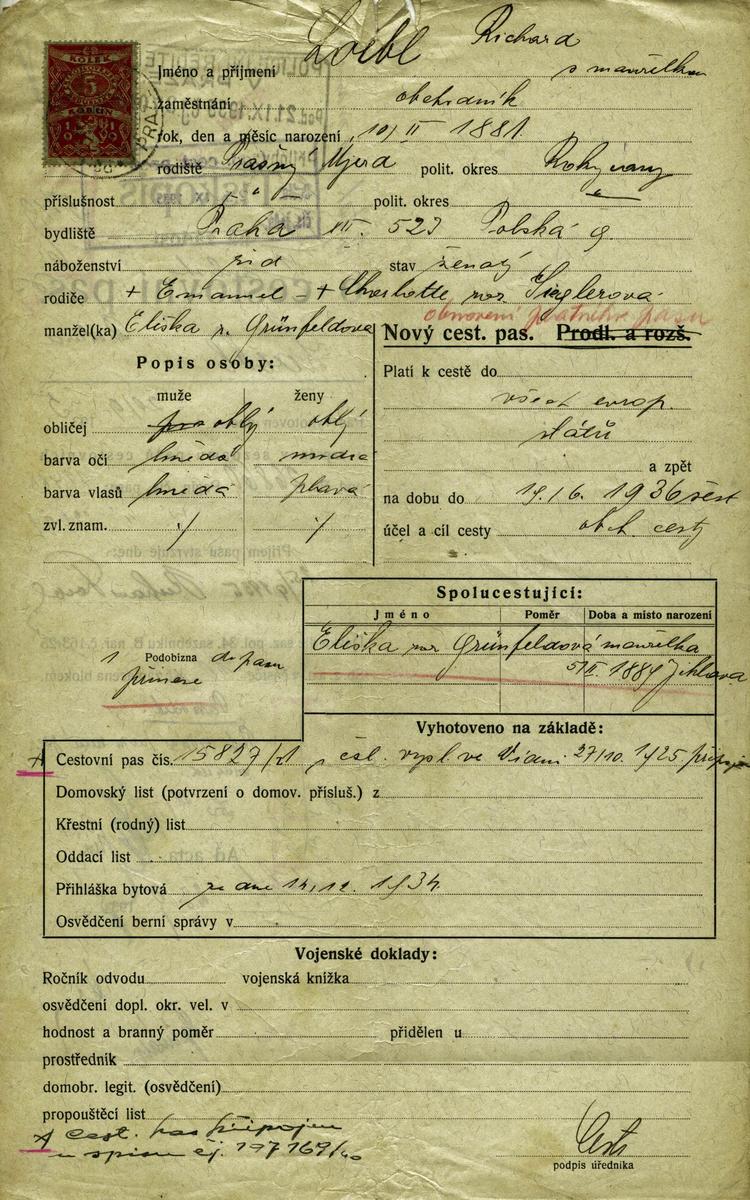 KOLEK
5
KORUN
Loebl Richard
Jméno a příjmení s manželkou
zaměstnání obchodník
rok, den a měsíc narození 10/II 1881
rodiště Prašný Újezd polit. okres Rokycany
příslušnost " polit. okres
bydliště Praha XII. 523 Polská
náboženství žid stav ženatý
rodiče + Emanuel - + Charlotte roz. Sieglerová
obnovení platného pasu
manžel(ka) Eliška r. Grünfeldová
Nový cest. pas. Prodl. a rozš.
Popis osoby:
muže ženy
obličej oblý oblý
barva očí hnědá modrá
barva vlasů hnědá plavá
zvl. znam. ./ ./
Platí k cestě do
všech evrop.
států
a zpět
na dobu do 19/6. 1936
účel a cíl cesty obch. cesty
Spolucestující:
Jméno Poměr Doba a místo narození
Eliška roz Grünfeldová manželka
5/II. 1889 Jihlava
1 Podobizna do pasu
přinese
Vyhotoveno na základě:
Cestovní pas čís. 15827/ čsl. vysl. ve Vídni 27/10. 1925 připoj
Domovský list (potvrzení o domov. přísluš.) z
Křestní (rodný) list
Oddací list
Přihláška bytová ze dne 14/12. 1934
Osvědčení berní správy v
Vojenské doklady:
Ročník odvodu vojenská knížka
osvědčení dopl. okr. vel. v
hodnost a branný poměr přidělen u
prostředník
domobr. legit. (osvědčení)
propouštěcí list
cest. pas připojen
u spisu čj. 197169/40
podpis úředníka